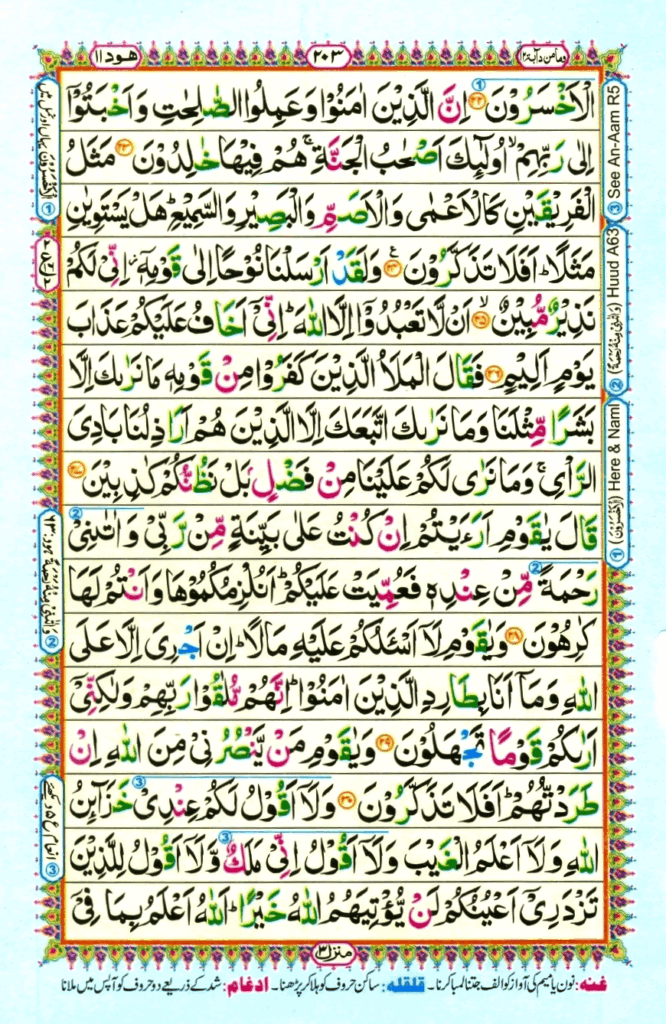 وما من دآبة ۱۲
۲۰۳
هود ۱۱
الۡاَخۡسَرُوۡنَ ﴿۲۲﴾ اِنَّ الَّذِيۡنَ اٰمَنُوۡا وَعَمِلُوا الصّٰلِحٰتِ وَاَخۡبَتُوۡۤا
اِلٰى رَبِّهِمۡۙ اُولٰٓٮِٕكَ اَصۡحٰبُ الۡجَـنَّةِ‌ۚ هُمۡ فِيۡهَا خٰلِدُوۡنَ ﴿۲۳﴾ مَثَلُ
الۡفَرِيۡقَيۡنِ كَالۡاَعۡمٰى وَالۡاَصَمِّ وَالۡبَـصِيۡرِ وَالسَّمِيۡعِ‌ؕ هَلۡ يَسۡتَوِيٰنِ
مَثَلًا‌ؕ اَفَلَا تَذَكَّرُوۡنَ ﴿۲۴﴾ وَلَقَدۡ اَرۡسَلۡنَا نُوۡحًا اِلٰى قَوۡمِهٖۤ اِنِّىۡ لَـكُمۡ
نَذِيۡرٌ مُّبِيۡنٌۙ ﴿۲۵﴾ اَنۡ لَّا تَعۡبُدُوۡۤا اِلَّا اللّٰهَ‌ؕ اِنِّىۡۤ اَخَافُ عَلَيۡكُمۡ عَذَابَ
يَوۡمٍ اَلِيۡمٍ ﴿۲۶﴾ فَقَالَ الۡمَلَاُ الَّذِيۡنَ كَفَرُوۡا مِنۡ قَوۡمِهٖ مَا نَرٰٮكَ اِلَّا
بَشَرًا مِّثۡلَنَا وَمَا نَرٰٮكَ اتَّبَعَكَ اِلَّا الَّذِيۡنَ هُمۡ اَرَاذِلُـنَا بَادِىَ
الرَّاۡىِ‌ۚ وَمَا نَرٰى لَـكُمۡ عَلَيۡنَا مِنۡ فَضۡلٍۢ بَلۡ نَظُنُّكُمۡ كٰذِبِيۡنَ ﴿۲۷﴾
قَالَ يٰقَوۡمِ اَرَءَيۡتُمۡ اِنۡ كُنۡتُ عَلٰى بَيِّنَةٍ مِّنۡ رَّبِّىۡ وَاٰتٰٮنِىۡ
رَحۡمَةً مِّنۡ عِنۡدِهٖ فَعُمِّيَتۡ عَلَيۡكُمۡؕ اَنُلۡزِمُكُمُوۡهَا وَاَنۡـتُمۡ لَـهَا
كٰرِهُوۡنَ ﴿۲۸﴾ وَيٰقَوۡمِ لَاۤ اَسۡـَٔـلُكُمۡ عَلَيۡهِ مَالًا‌ؕ اِنۡ اَجۡرِىَ اِلَّا عَلَى
اللّٰهِ‌ وَمَاۤ اَنَا بِطَارِدِ الَّذِيۡنَ اٰمَنُوۡا‌ؕ اِنَّهُمۡ مُّلٰقُوۡا رَبِّهِمۡ وَلٰـكِنِّىۡۤ
اَرٰٮكُمۡ قَوۡمًا تَجۡهَلُوۡنَ ﴿۲۹﴾ وَيٰقَوۡمِ مَنۡ يَّنۡصُرُنِىۡ مِنَ اللّٰهِ اِنۡ
طَرَدْتُّهُمۡ‌ؕ اَفَلَا تَذَكَّرُوۡنَ ﴿۳۰﴾ وَلَاۤ اَقُوۡلُ لَـكُمۡ عِنۡدِىۡ خَزَآٮِٕنُ
اللّٰهِ وَلَاۤ اَعۡلَمُ الۡغَيۡبَ وَلَاۤ اَقُوۡلُ اِنِّىۡ مَلَكٌ وَّلَاۤ اَقُوۡلُ لِلَّذِيۡنَ
تَزۡدَرِىۡۤ اَعۡيُنُكُمۡ لَنۡ يُّؤۡتِيَهُمُ اللّٰهُ خَيۡرًا‌ؕ اَللّٰهُ اَعۡلَمُ بِمَا فِىۡۤ
منزل ۳
غنه: نون یا میم کی آواز کو الف جتنا لمبا کرنا۔ قلقله: ساکن حروف کو ہلا کر پڑھنا۔ ادغام: شد کے ذریعے دو حروف کو آپس میں ملانا
③ See An-Aam R5
② (وَاٰتٰنِىْ مِنْهُ رَحْمَةً) Huud A63
① (الْاَخْسَرُوْنَ) Here & Naml
② وَاٰتٰنِىْ مِنْهُ رَحْمَةً ہود: ۶۳